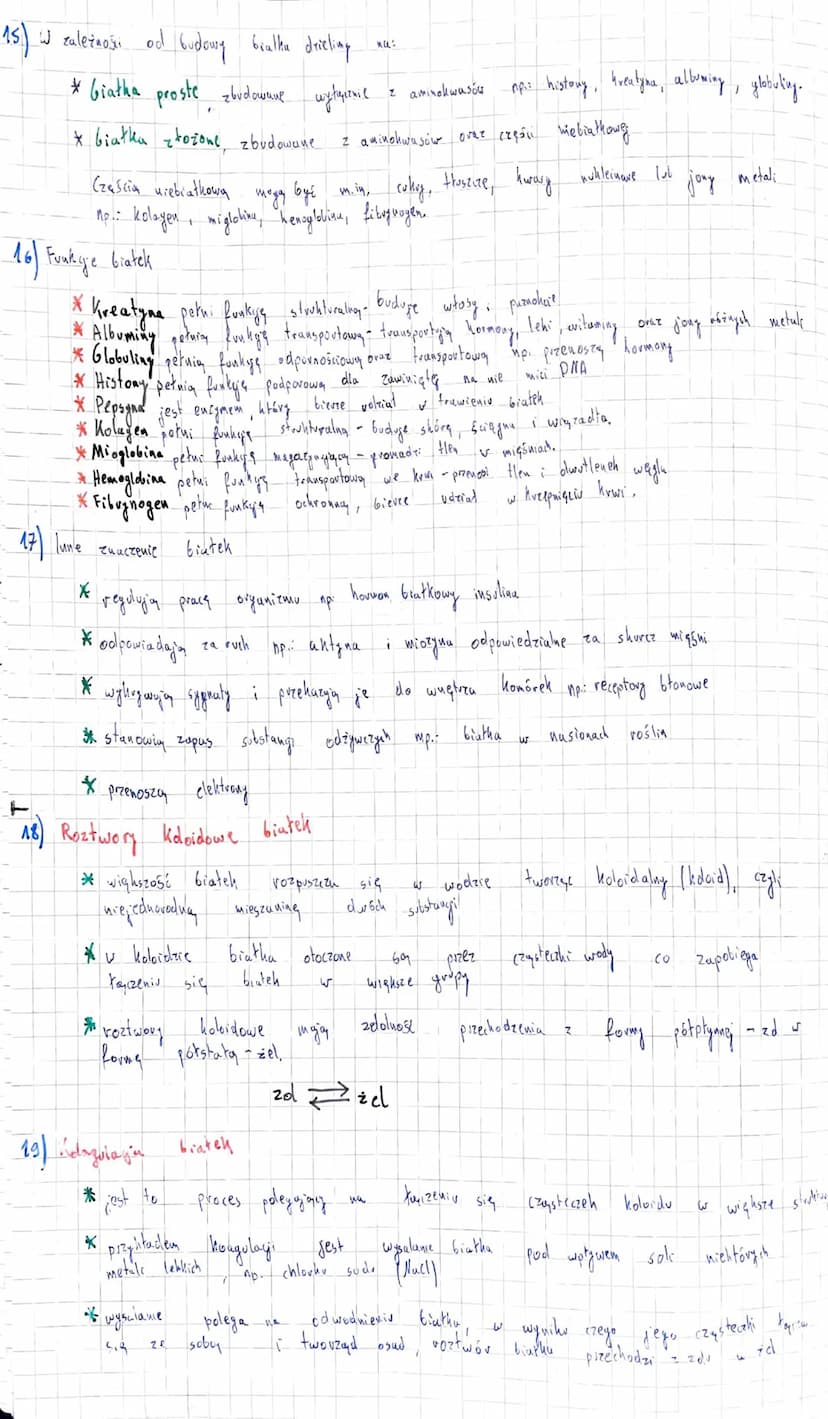 15) W zależności od budowy białka dzielimy na:
* białka proste, zbudowane wyłącznie z aminokwasów np.: histony, kreatyna, albuminy, globuliny.
* białka złożone, zbudowane z aminokwasów oraz części niebiałkowej
Częścią niebiałkową mogą być m.in. cukry, tłuszcze, kwasy nukleinowe lub jony metali
np.: kolagen, mioglobina, hemoglobina, fibrynogen.
16) Funkcje białek
* Kreatyna pełni funkcję strukturalną - buduje włosy, paznokcie
* Albuminy pełnią funkcję transportową - transportują hormony, leki, witaminy oraz jony różnych metali
* Globuliny pełnią funkcję odpornościową oraz transportową np. przenoszą hormony
* Histony pełnią funkcję podporową dla zawiniętej na nie nici DNA
* Pepsyna jest enzymem, który bierze udział w trawieniu białek
* Kolagen pełni funkcję strukturalną - buduje skórę, ścięgna i więzadła.
* Mioglobina pełni funkcję magazynującą - prowadzi tlen w mięśniach.
* Hemoglobina pełni funkcję transportową we krwi - przenosi tlen i dwutlenek węgla
* Fibrynogen pełni funkcję ochronną, bierze udział w krzepnięciu krwi.
17) Inne znaczenie białek
* regulują pracę organizmu np. hormon białkowy insulina
* odpowiadają za ruch np.: aktyna i miozyna odpowiedzialne za skurcz mięśni
* wykrywają sygnały i przekazują je do wnętrza komórek np.: receptory błonowe
* stanowią zapas substancji odżywczych np.: białka w nasionach roślin
* przenoszą elektrony
18) Roztwory koloidowe białek
* większość białek rozpuszcza się w wodzie tworząc koloidalny (koloid), czyli
niejednorodną mieszaninę dwóch substancji
* w koloidzie białka otoczone są przez cząsteczki wody co zapobiega
łączeniu się białek w większe grupy
* roztwory koloidowe mają zdolność przechodzenia z formy półpłynnej - zol w
formę półstałą - żel.
zol ⇄ żel
19) Koagulacja białek
* jest to proces polegający na łączeniu się cząsteczek koloidu w większe
* przykładem koagulacji jest wysalanie białka pod wpływem soli niektórych
metali lekkich, np. chlorku sodu (NaCl)
* wysalanie polega na odwodnieniu białka, w wyniku czego jego cząsteczki łączą
się ze sobą i tworząc osad, roztwór białka przechodzi z zolu w żel